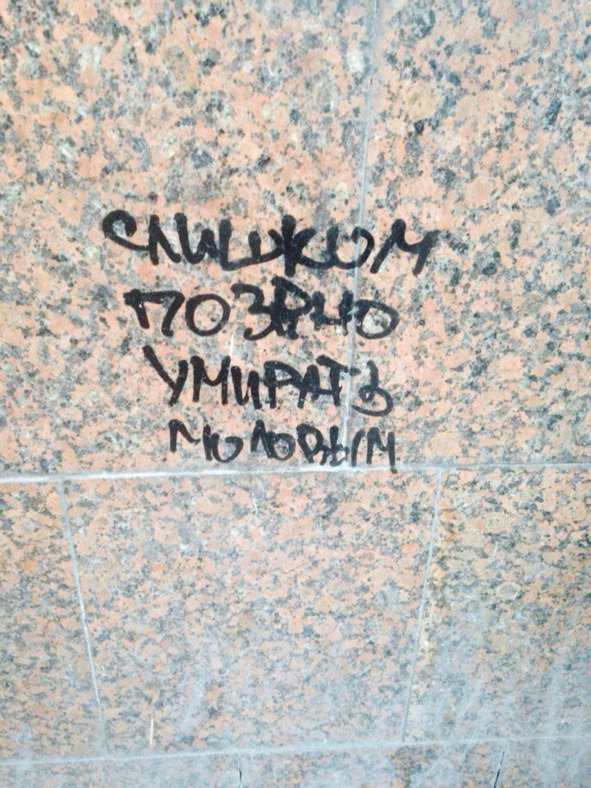 СЛИШКОМ
ПОЗДНО
УМИРАТЬ
МОЛОДЫМ